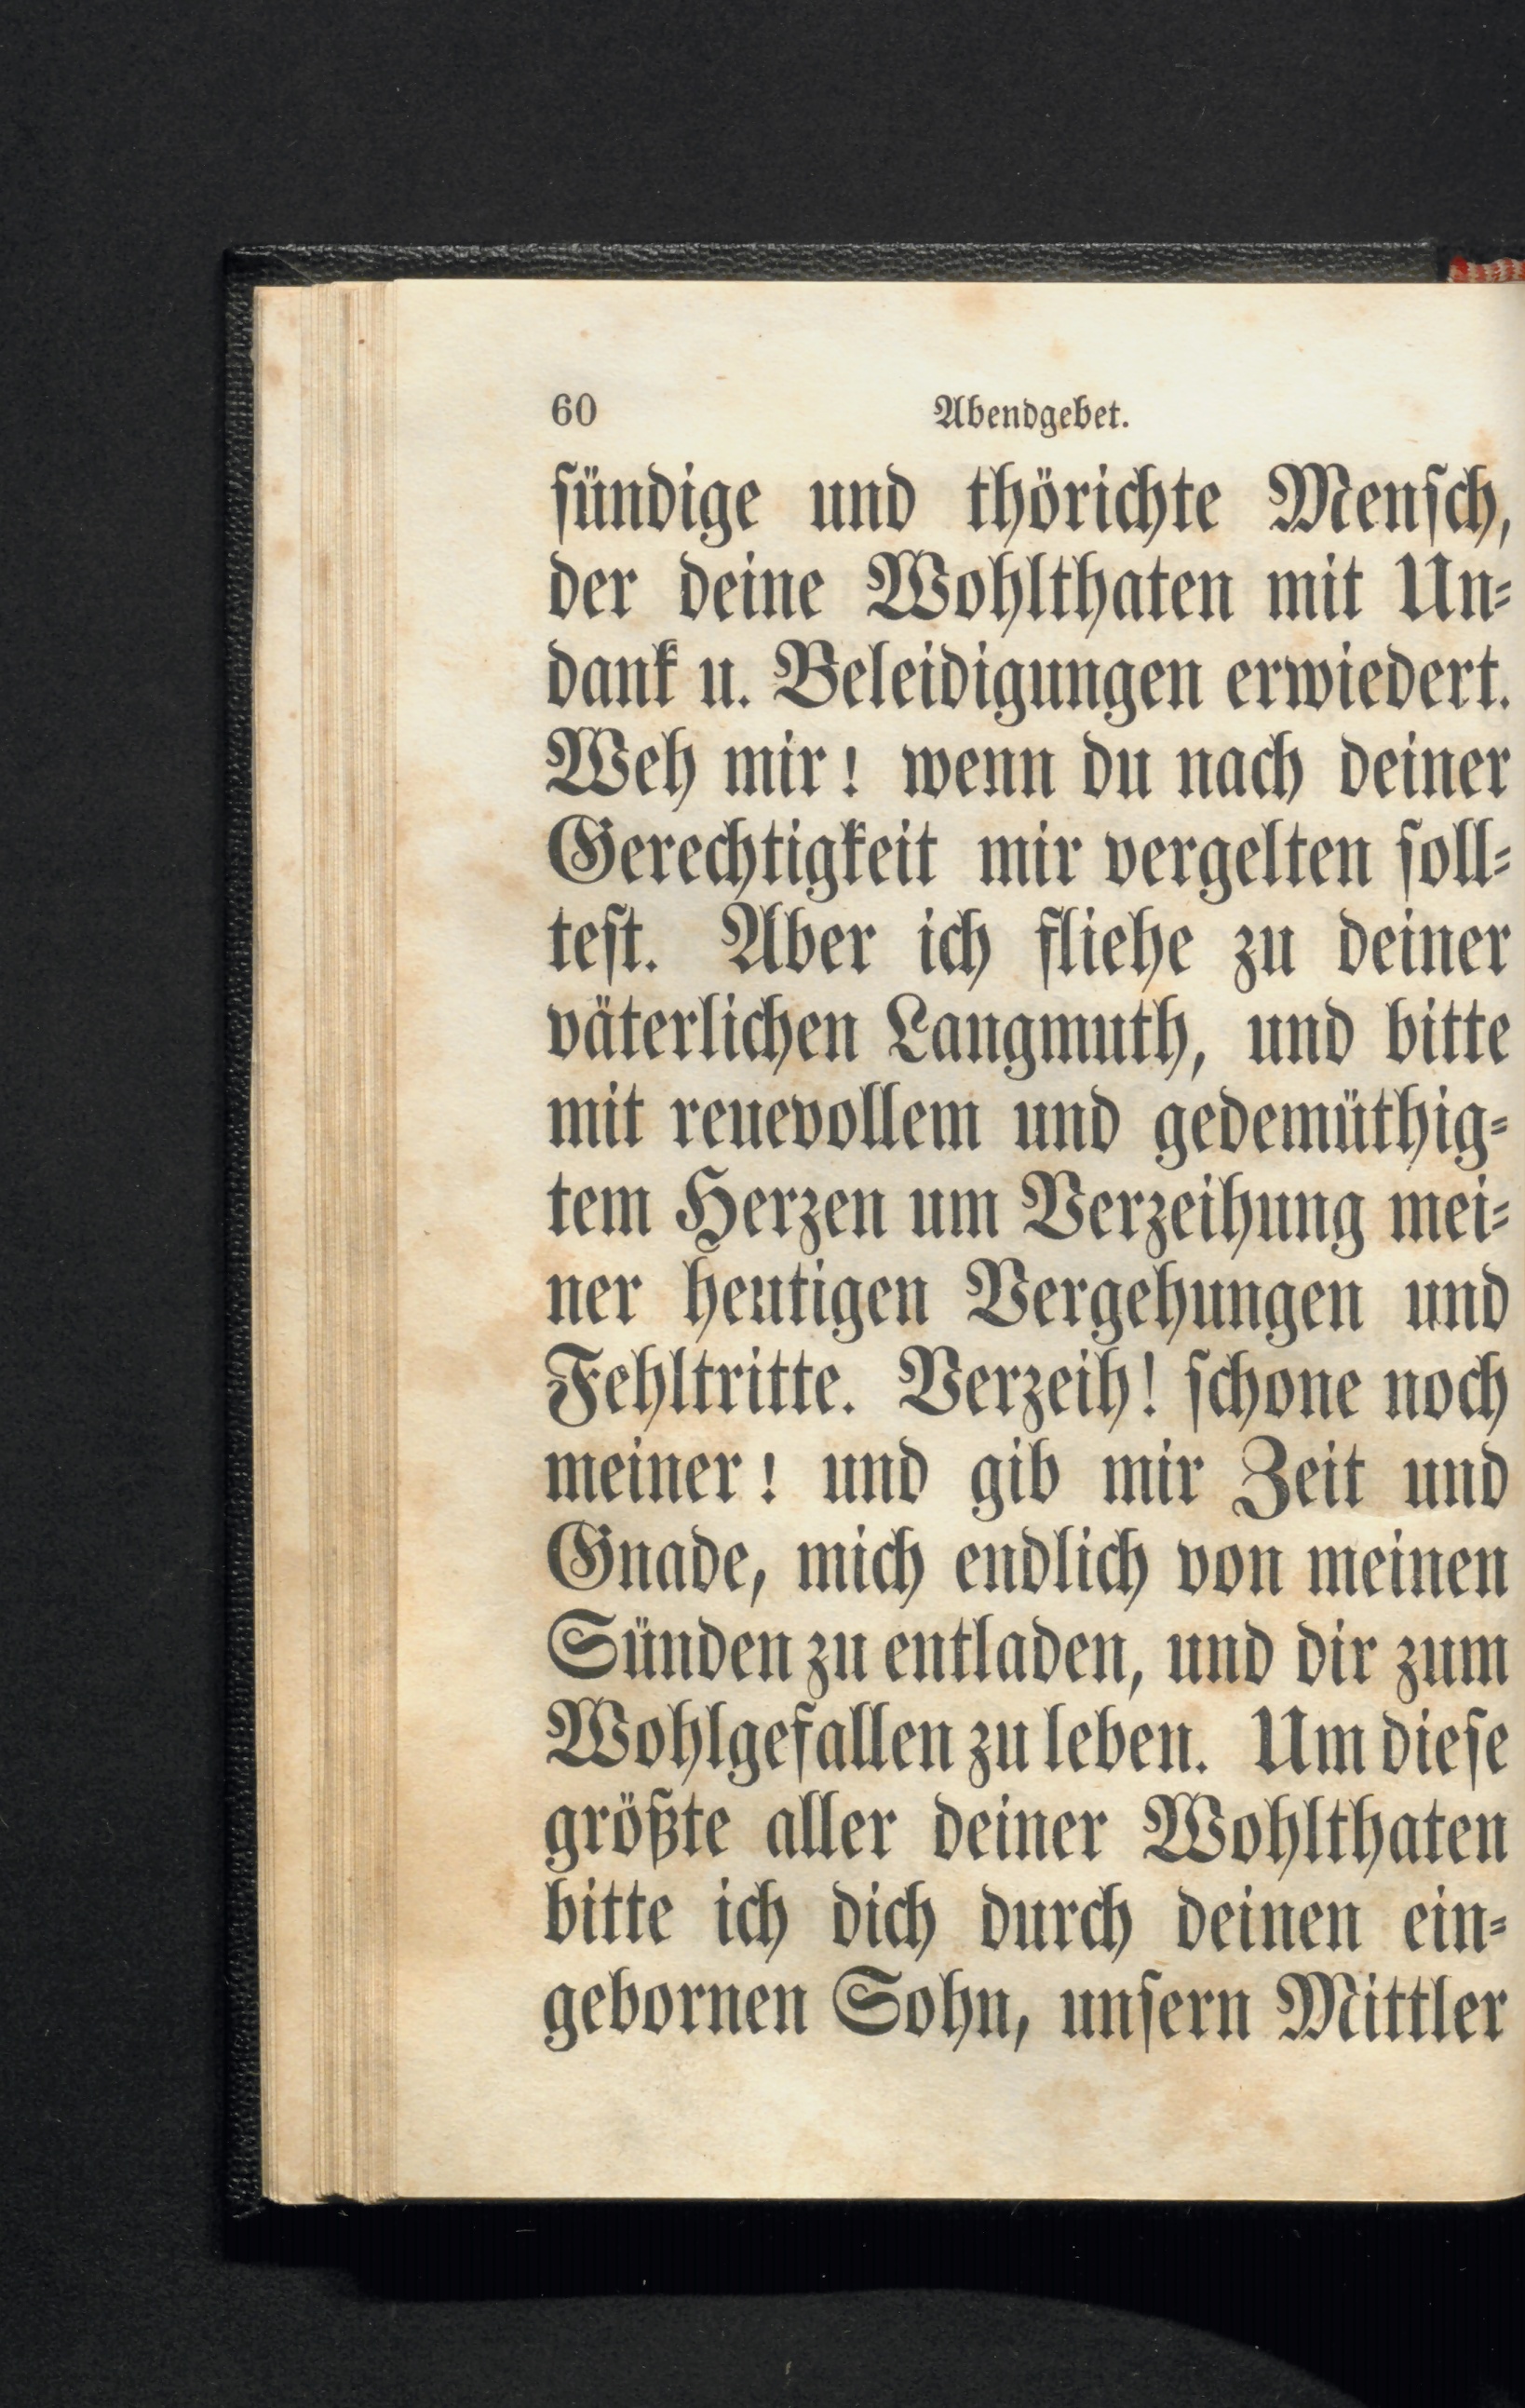 60 Abendgebet.
sündige und thörichte Mensch,
der deine Wohlthaten mit Un-
dank u. Beleidigungen erwiedert.
Weh mir! wenn du nach deiner
Gerechtigkeit mir vergelten soll-
test. Aber ich fliehe zu deiner
väterlichen Langmuth, und bitte
mit reuevollem und gedemüthig-
tem Herzen um Verzeihung mei-
ner heutigen Vergehungen und
Fehltritte. Verzeih! schone noch
meiner! und gib mir Zeit und
Gnade, mich endlich von meinen
Sünden zu entladen, und dir zum
Wohlgefallen zu leben. Um diese
größte aller deiner Wohlthaten
bitte ich dich durch deinen ein-
gebornen Sohn, unsern Mittler